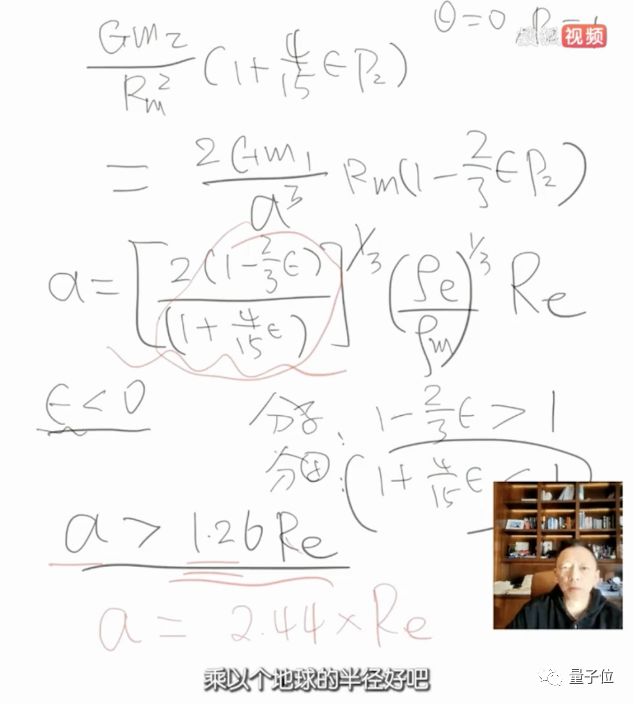 θ=0 P₂=1
搜狐视频
Gm₂/Rₘ² (1+4/15 ϵP₂)
= 2Gm₁/a³ Rₘ(1-2/3 ϵP₂)
a=[2(1-2/3 ϵ)/(1+4/15 ϵ)]^1/3 (ρe/ρm)^1/3 Re
ϵ<0
分子: 1-2/3 ϵ > 1
分母: (1+4/15 ϵ < 1)
a > 1.26Re
a = 2.44×Re
乘以个地球的半径好吧
量子位